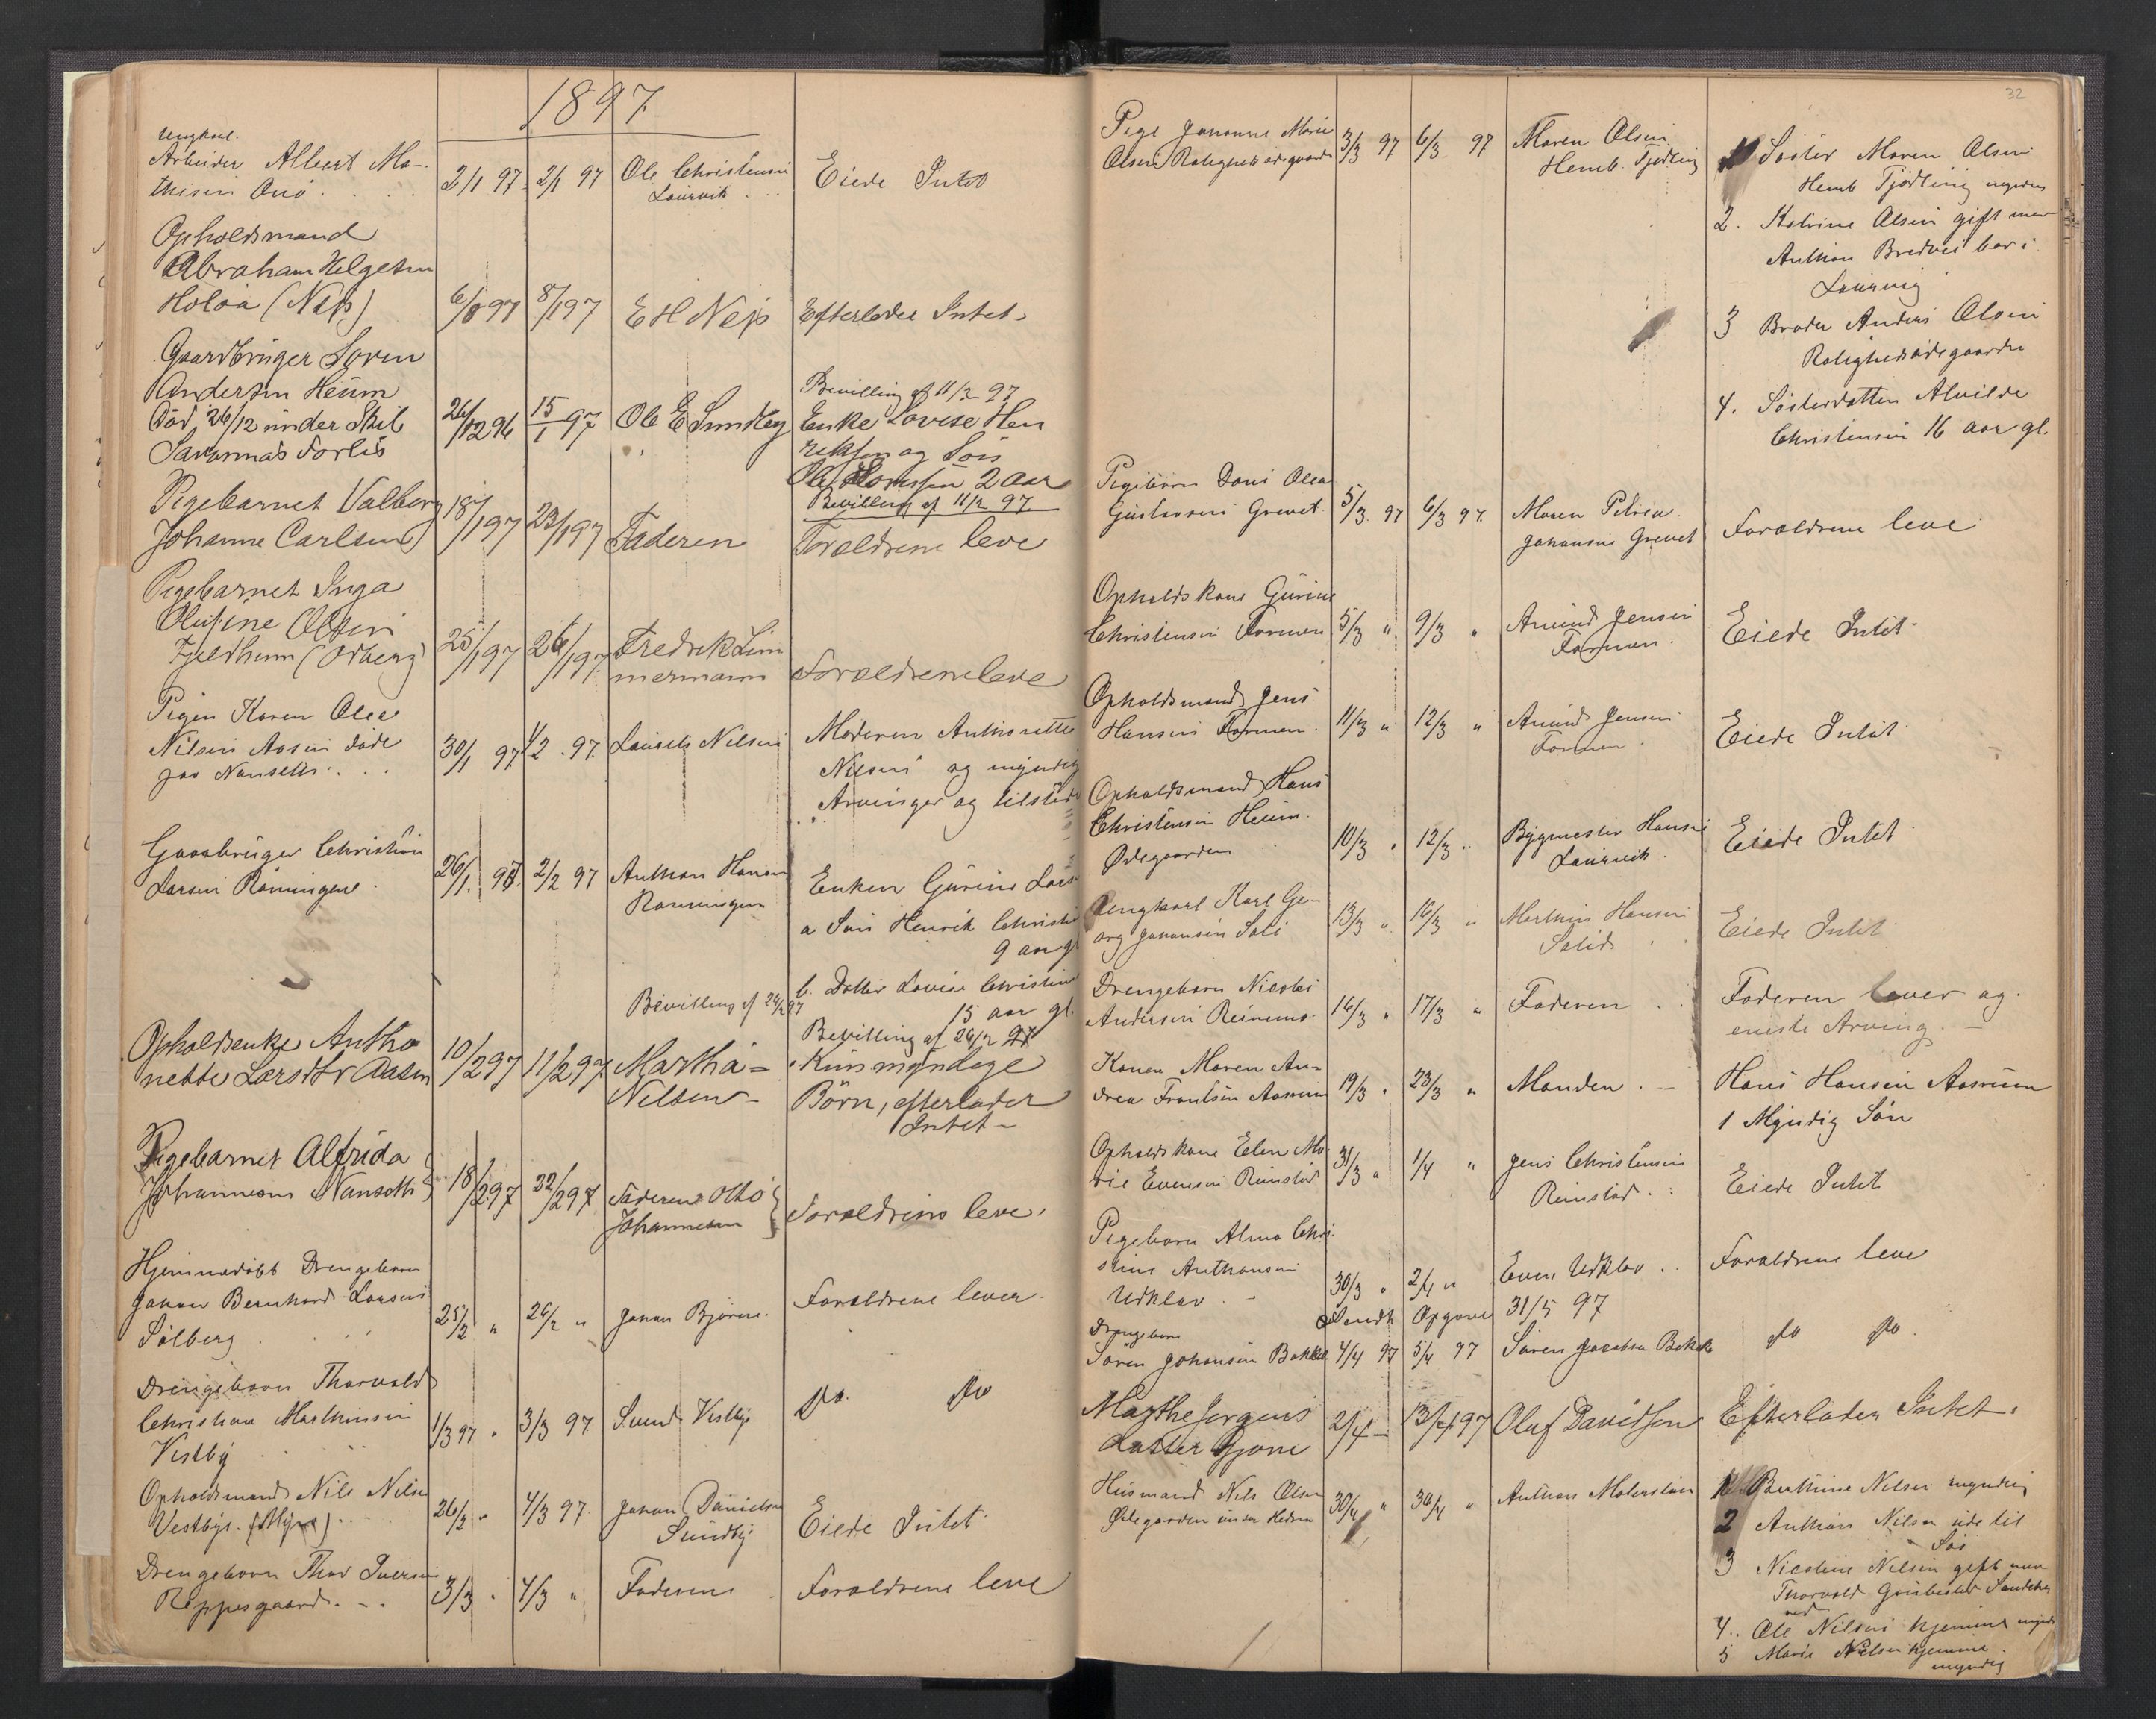 1897
Ungkarl
Arbeider Albert Ma-
thisen Onø 2/1 97 2/1 97 Ole Christensen Eiede Intet
Laurvik
Opholdsmand
Abraham Helgesen
Holoa (Nejs) 8/1 97 E H Nejs Efterlader Intet
Gaardbruger Soren
Andersen Heum Bevilling af 11/2 97
Död 26/12 under Skib 26/12 96 15/1 97 Ole E Sundby Enke Lovise Hen
Savannas Forlis riksen og Søn
Ole 2 Aar
Bevilling af 11/2 97
Pigebarnet Valborg
Johanne Carlsen 18/1 97 23/1 97 Faderen Forældrene leve
Pigebarnet Inga
Olufine Olsen
Fjeldheim (Odberg) 25/1 97 26/1 97 Fredrik Zim
mermann Forældrene leve
Pigen Karen Olea
Nilsen Aasen døde 30/1 97 1/2 97 Laurits Nilsen Moderen Anthonette
paa Nanseth Nilsen og myndig
Arvinger og tilstede
Gaardbruger Christian
Larsen Rønningen 26/1 97 2/2 97 Anthon Hansen Enken Gurine Lars
Rønningen a Søn Henrik Christi
9 aar gl
b. Datter Lovise Christine
Bevilling af 24/2 97 15 aar gl.
Bevilling af 24/2 97
Opholdsenke Antho
nette Larsdtr Aasen 10/2 97 11/2 97 Martha Kun myndige
Nilsen Börn, efterlader
Intet
Pigebarnet Alfrida
Johannesen Nanseth 18/2 97 22/2 97 Faderen Otto Forældrene leve
Johannesen
Hjemmedøbt Drengebarn
Johan Bernhard Larsen 25/2 " 26/2 " Johan Bjørne Forældrene lever
Solberg
Drengebarn Thorvald
Christian Marthinsen 1/3 97 3/3 97 Svend Vestby Do Do
Vestby
Opholdsmand Nils Nilsen
Vestby (Myra) 26/2 " 4/3 97 Johan Danielsen Eiede Intet
Sundby
Drengebarn Thor Iversen
Reppesgaard 3/3 " 4/3 " Faderen Forældrene leve
32
Pige Johanne Marie 3/3 97 6/3 97 Maren Olsen 1 Søster Maren Olsen
Olsen Rolighedsødegaarden Hemb. Tjødling Hemb Tjødling myndig
2. Katrine Olsen gift med
Anthon Bredvei bor i
Laurvig
3 Broder Anders Olsen
Rolighedsødegaarden
4. Søsterdatter Alvilde
Christensen 16 aar gl.
Pigebarn Dani Olea
Gustavsen Grevet 5/3 97 6/3 97 Maren Petrea Forældrene leve
Johansen Grevet
Opholdskone Gurine
Christensen Farmen 5/3 " 9/3 " Amund Jensen Eiede Intet
Farmen
Opholdsmand Jens
Hansen Farmen 11/3 " 12/3 " Amund Jensen Eiede Intet
Farmen
Opholdsmand Hans
Christensen Heum 10/3 " 12/3 " Bygmester Hansen Eiede Intet
Ødegaarden Laurvik
Ungkarl Karl Ge-
org Johansen Soli 13/3 " 16/3 " Marthin Hansen Eiede Intet
Solid
Drengebarn Nicolai
Andersen 16/3 " 17/3 " Faderen Faderen lever og
eneste Arving
Konen Maren An-
drea Frantsen Aasrum 19/3 " 23/3 " Manden Hans Hansen Aasrum
1 Myndig Søn
Opholdskone Elen Ma
rie Evensen Rimstad 31/3 " 1/4 " Jens Christensen Eiede Intet
Rimstad
Pigebarn Alma Chri
stine Anthonsen
Udklav 30/3 " 2/4 " Even Udklav Forældrene leve
Sendt Opgave 31/5 97
Drengebarn
Søren Johansen Bakke 4/4 97 5/4 97 Søren Jacobsen Bakke do do
Marthe Jørgens
datter Gjone 2/4 13/4 97 Oluf Davidsen Efterlader Intet.
Husmand Nils Olsen
Ødegaarden under Hedrum 30/4 " 30/4 " Anthon 1 Nilsen myndig
2 Anthon Nilsen ude til
Søs
3 Nicoline Nilsen gift med
Thorvald Sandeherred
4. Ole Nilsen hjemme myndig
5 Marie Nilsen hjemme
myndig